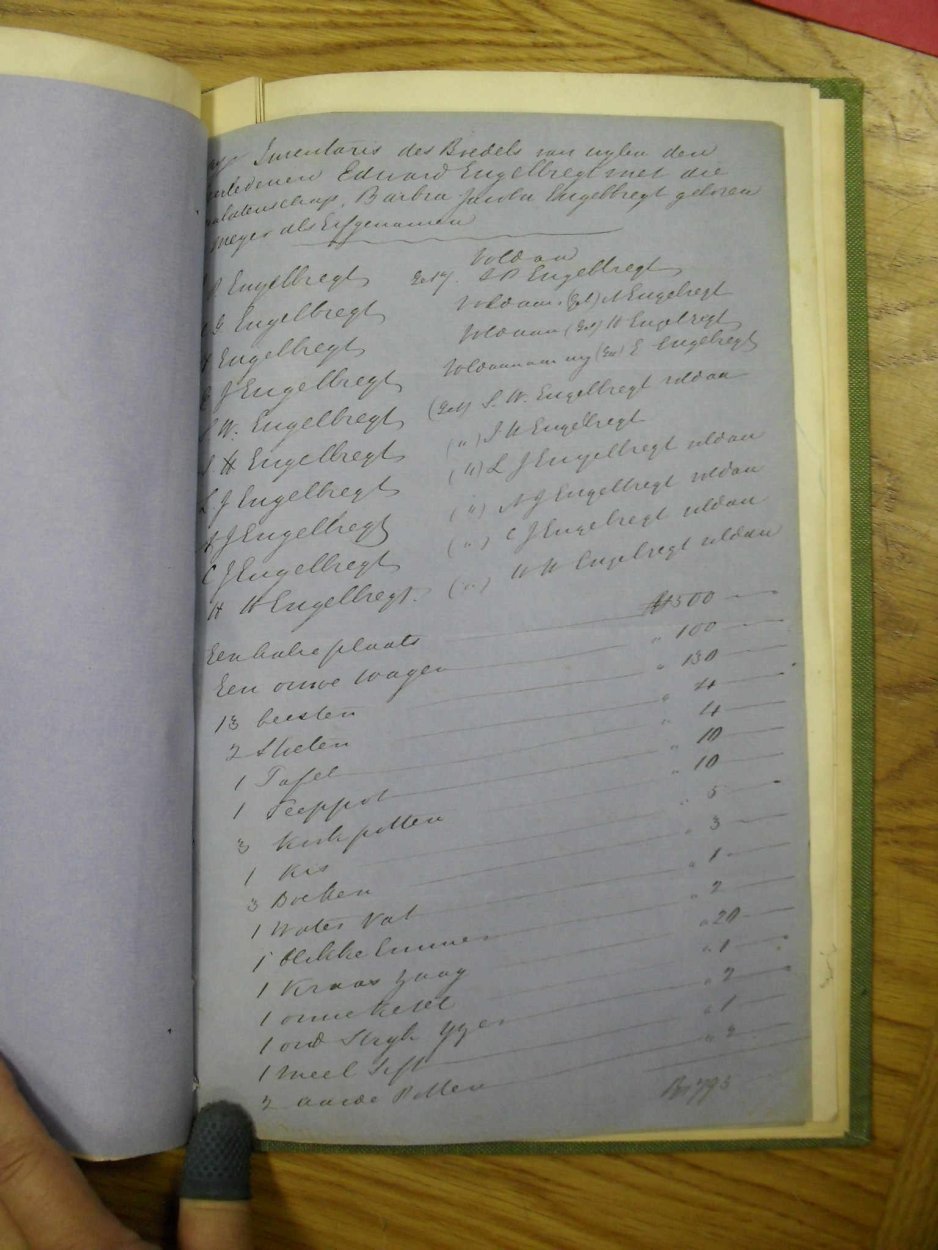 Inventaris des Boedels van wylen den
Edward Engelbregt met die
Barbra Jacoba Engelbregt geboren
Meyer als Erfgenamen
Voldaan
P Engelbregt Get. P Engelbregt
J Engelbregt Voldaan (Get) J Engelbregt
H Engelbregt Voldaan (Get) H Engelbregt
E J Engelbregt Voldaan aan my (Get) E Engelbregt
S W. Engelbregt (Get) S. W. Engelbregt voldaan
J H Engelbregt (") J H Engelbregt
L J Engelbregt (") L J Engelbregt voldaan
A J Engelbregt (") A J Engelbregt voldaan
C J Engelbregt (") C J Engelbregt voldaan
H H Engelbregt (") H H Engelbregt voldaan
Een halve plaats 500
Een ouwe Wagen " 100
13 beesten " 130
2 Stoelen " 4
1 Tafel " 4
1 Teeppot " 10
3 Kookpotten " 10
1 Kis " 5
3 Boeken " 3
1 Water Vat " 1
1 Blikke Emmer " 2
1 Kraan zaag " 20
1 ouwe Ketel " 1
1 oud Stryk Yzer " 2
1 Meel Sift " 1
2 aarde Potten " 2
793